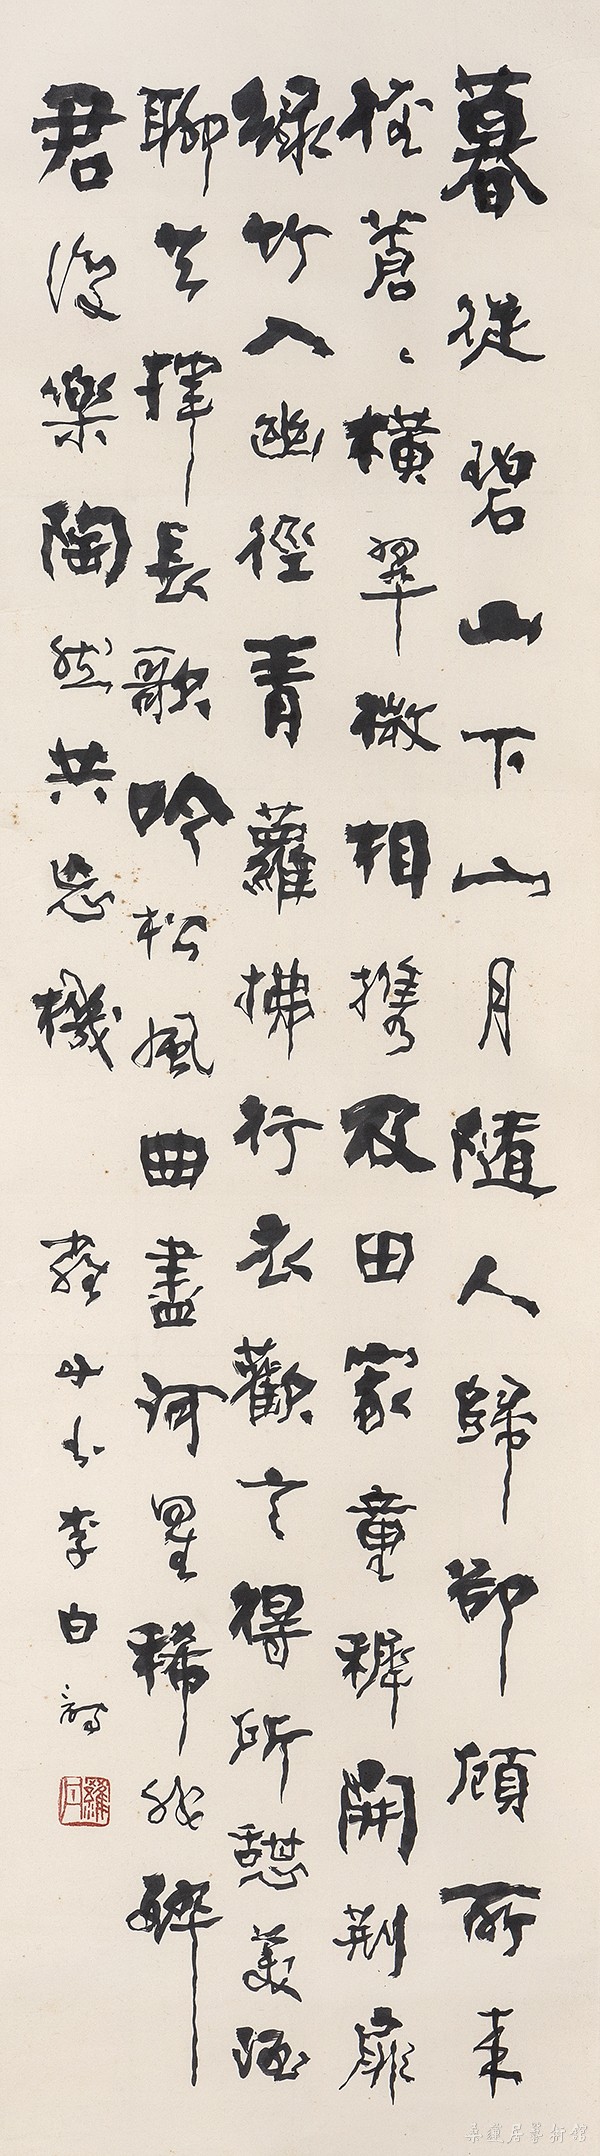 暮從碧山下山月隨人歸卻顧所來
徑蒼〻橫翠微相攜及田家童穉開荊扉
綠竹入幽徑青蘿拂行衣歡言得所憩美酒
聊共揮長歌吟松風曲盡河星稀我醉
君復樂陶然共忘機 羅丹书李白詩
羅丹
桑蓮居藝術館